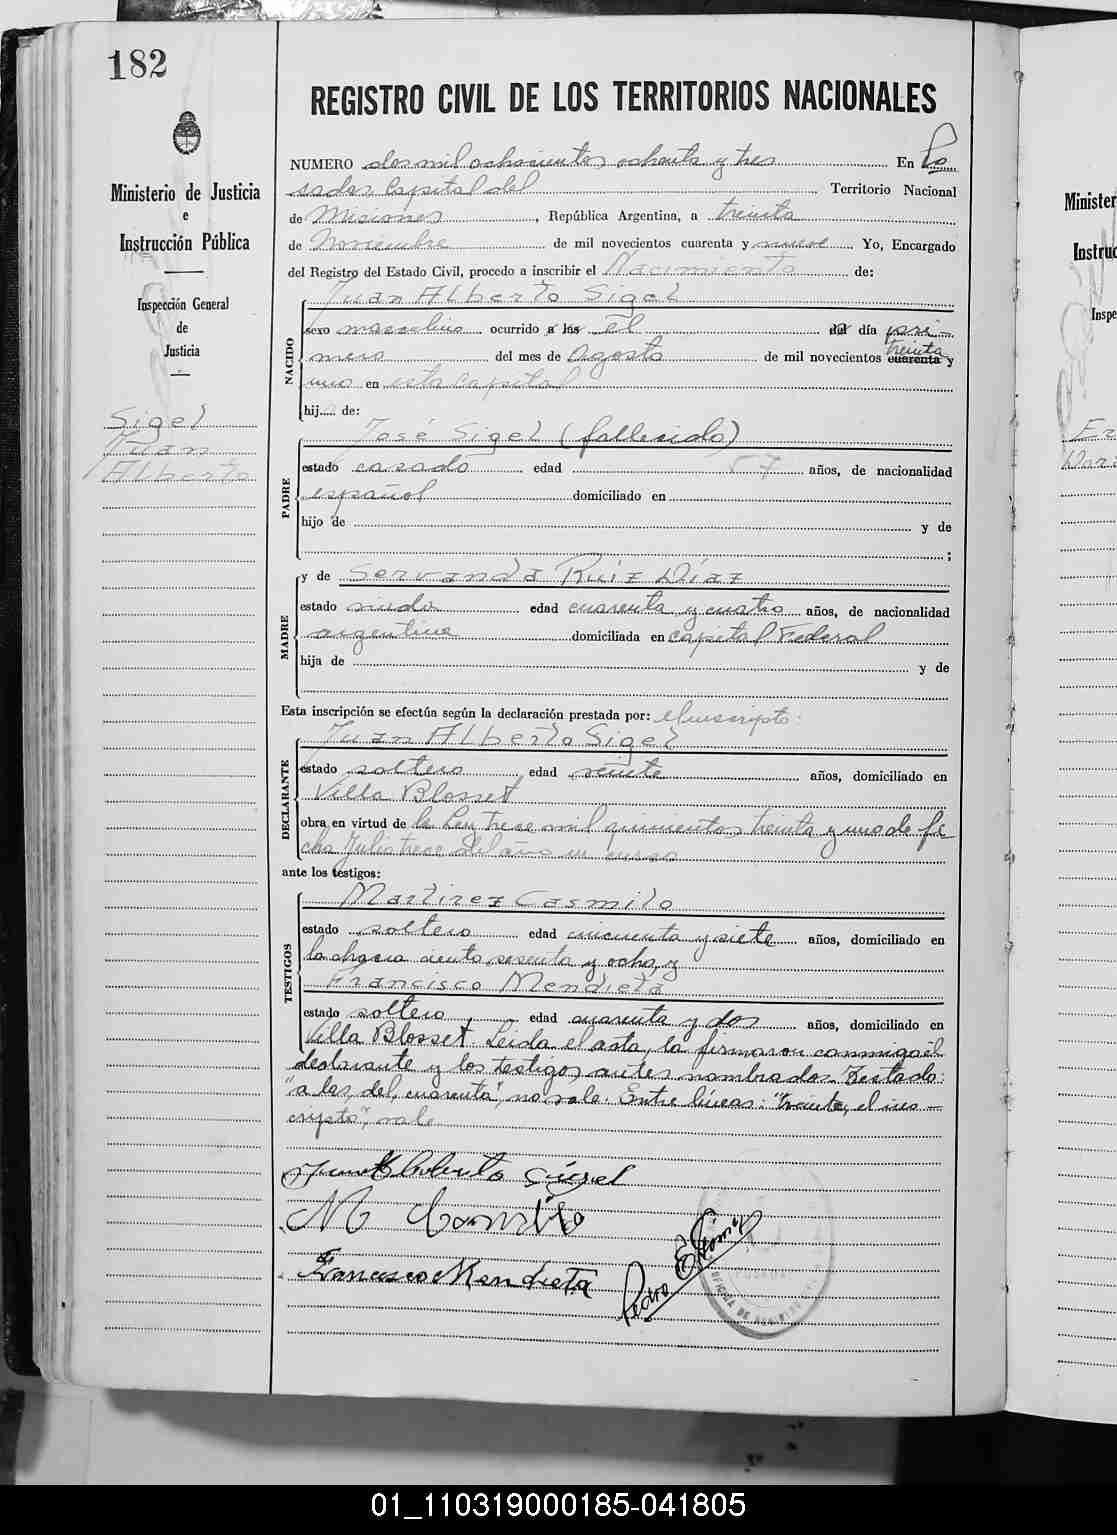 182
Ministerio de Justicia
e
Instrucción Pública
Inspección General
de
Justicia
Sigel
Juan
Alberto
REGISTRO CIVIL DE LOS TERRITORIOS NACIONALES
NUMERO dos mil ochocientos ochenta y tres En Po
sadas Capital del Territorio Nacional
de Misiones, República Argentina, a treinta
de Noviembre de mil novecientos cuarenta y nueve Yo, Encargado
del Registro del Estado Civil, procedo a inscribir el Nacimiento de:
NACIDO
Juan Alberto Sigel
sexo masculino ocurrido a las el del día pri-
mero del mes de Agosto de mil novecientos cuarenta treinta y
uno en esta capital
hij.... de:
PADRE
José Sigel (fallesido)
estado casado edad 57 años, de nacionalidad
español domiciliado en
hijo de y de
;
MADRE
y de Servanda Ruiz Díaz
estado viuda edad cuarenta y cuatro años, de nacionalidad
argentina domiciliada en capital Federal
hija de y de
Esta inscripción se efectúa según la declaración prestada por: el inscripto:
DECLARANTE
Juan Alberto Sigel
estado soltero, edad veinte años, domiciliado en
Villa Blosset
obra en virtud de la Ley trese mil quinientos treinta y uno de fe
cha Julio trece del año en curso
ante los testigos:
TESTIGOS
Martirez Casmilo
estado soltero edad cincuenta y siete años, domiciliado en
la chacra ciento sesenta y ocho, y
Francisco Mendieta
estado soltero, edad cuarenta y dos años, domiciliado en
Villa Blosset Leida el acta, la firmaron conmigo el
declarante y los testigos antes nombrados. Testado:
"a las, del, cuarenta", no vale. Entre líneas: "treinta, el ins-
cripto", vale.
Juan Alberto Sigel
M Casmilo
Francisco Mendieta
Pedro
Ministe
Instruc
Inspe
01_110319000185-041805